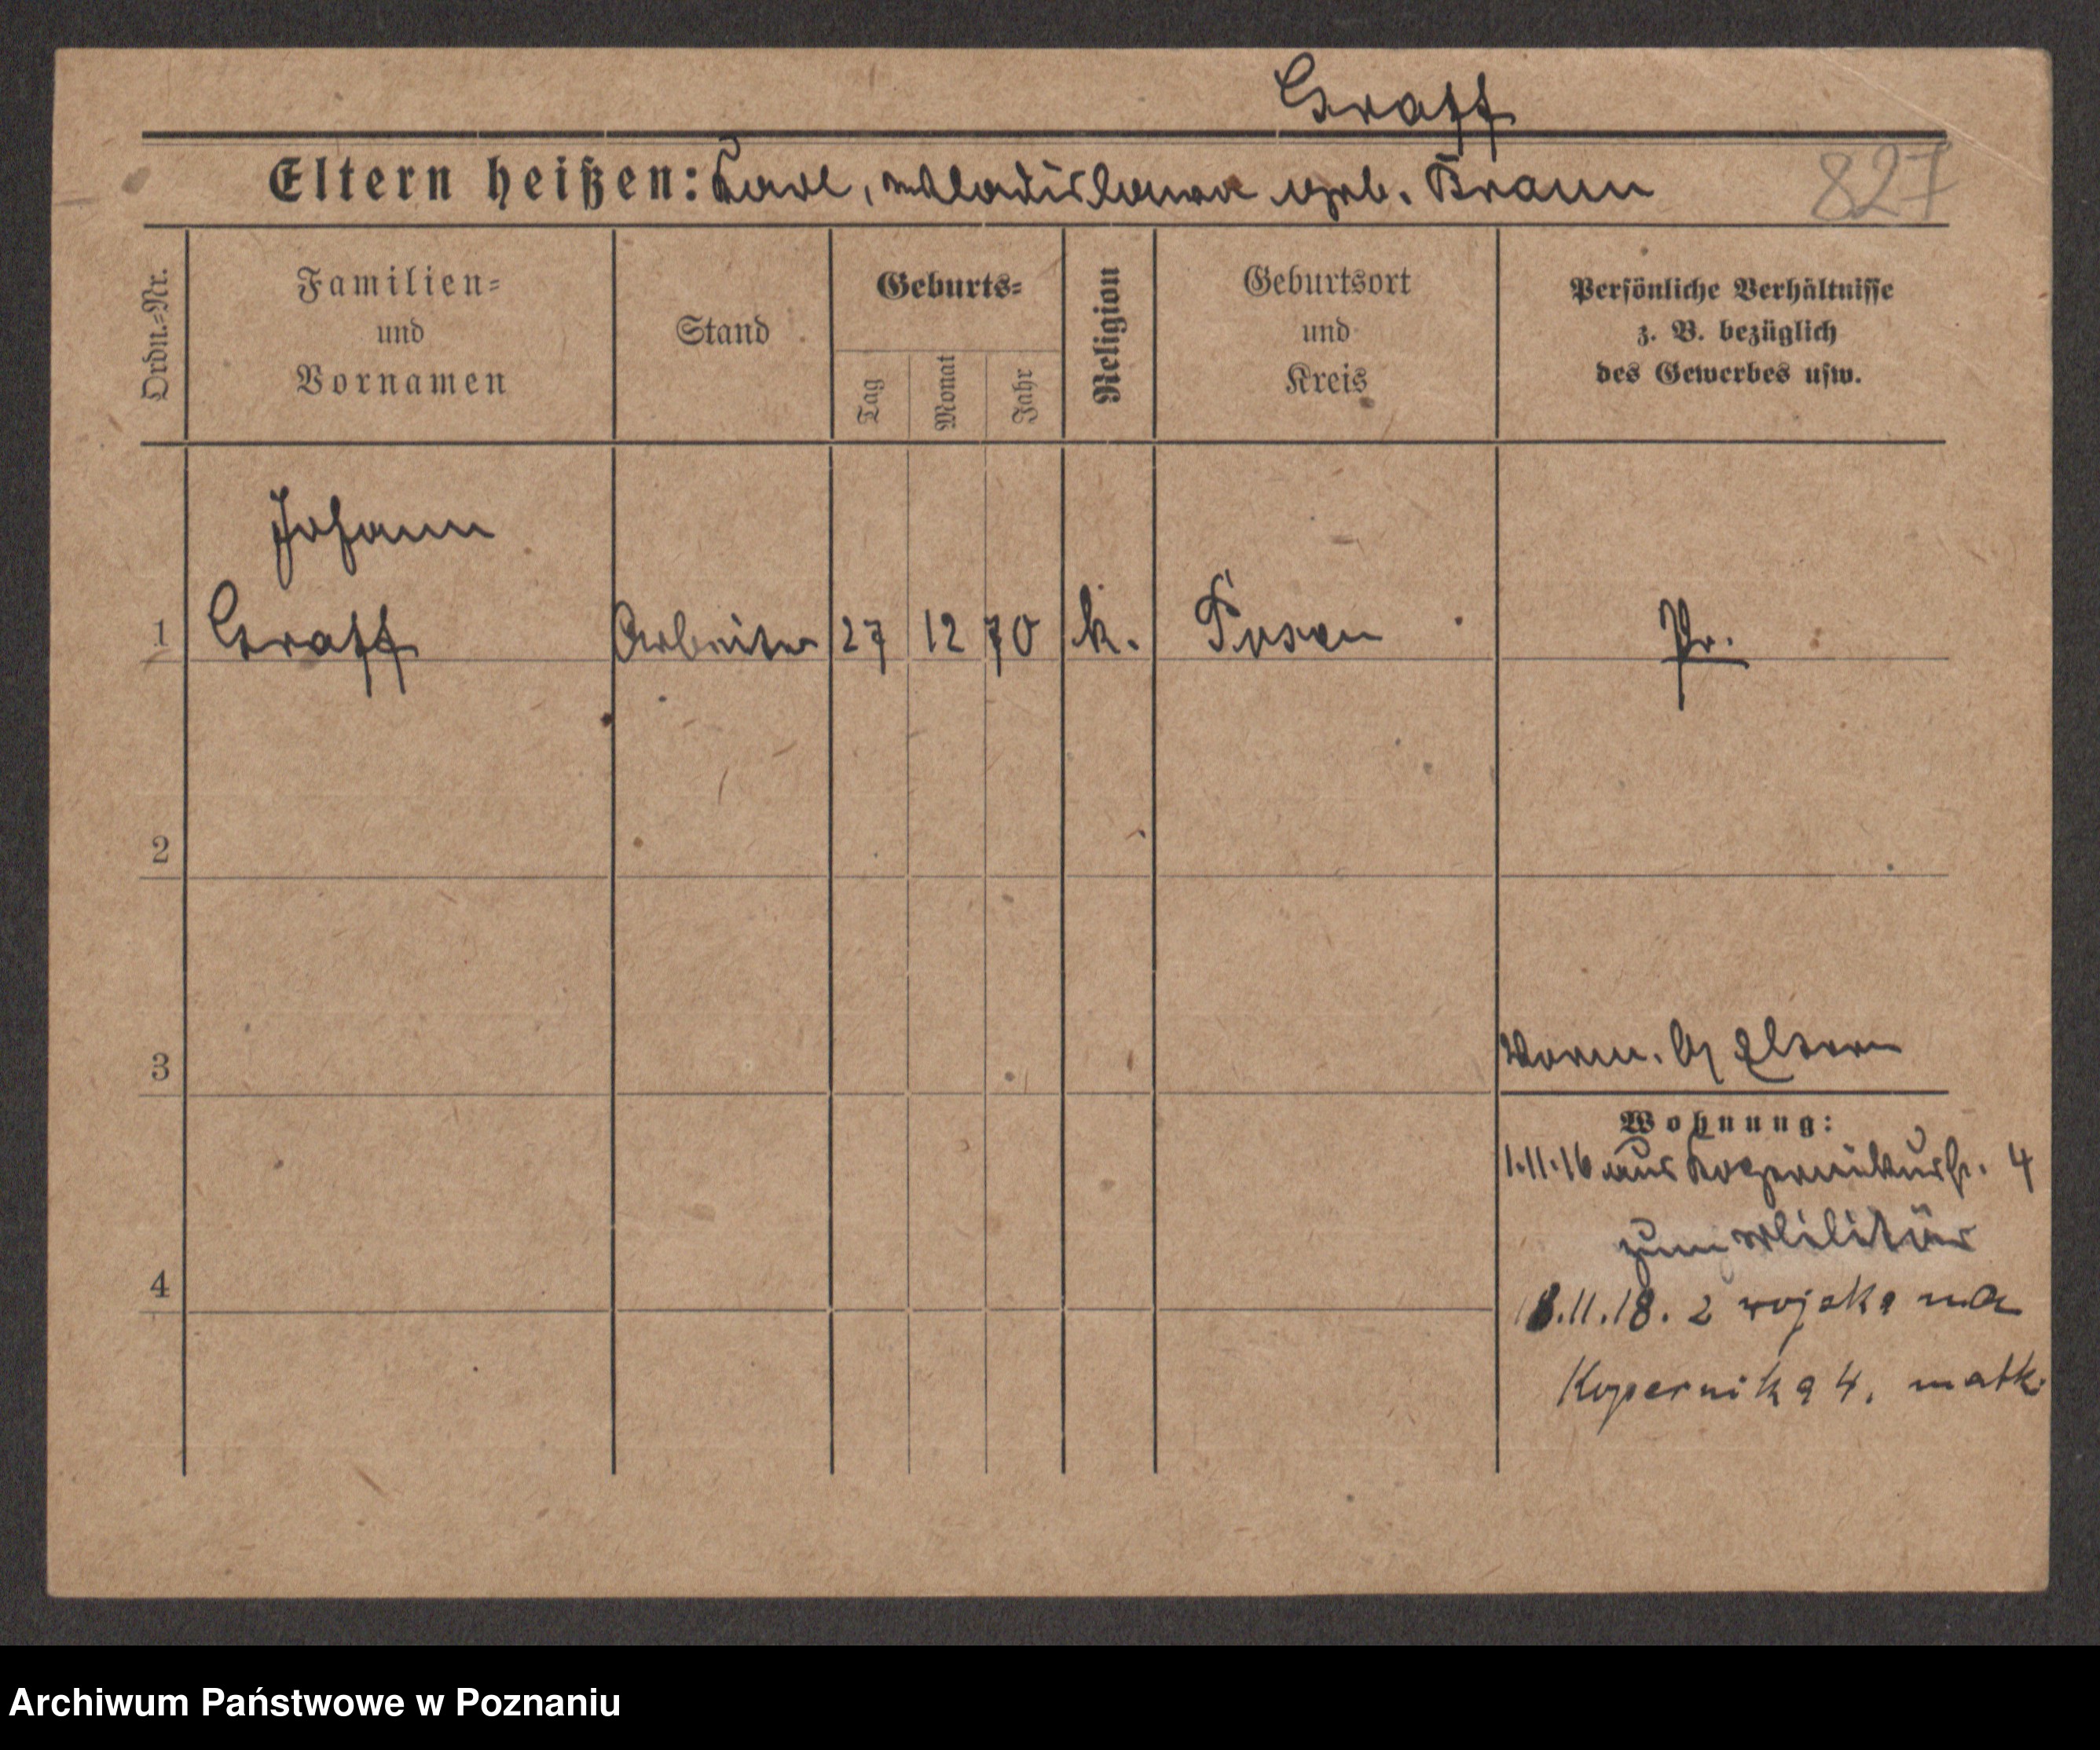 Graff
Eltern heißen: Karl, Wladislawa geb. Braun
827
Ordn.=Nr.
Familien=
und
Vornamen
Stand
Geburts=
Tag
Monat
Jahr
Religion
Geburtsort
und
Kreis
Persönliche Verhältnisse
z. B. bezüglich
des Gewerbes usw.
Johann
1 Graff Arbeiter 27 12 70 k. Posen Pr.
2
3
Vorm. b/ Eltern
Wohnung:
1.11.16 aus Kopernikusstr. 4
zum Militär
4
18.11.18. z wojska na
Kopernika 4. matk.
Archiwum Państwowe w Poznaniu